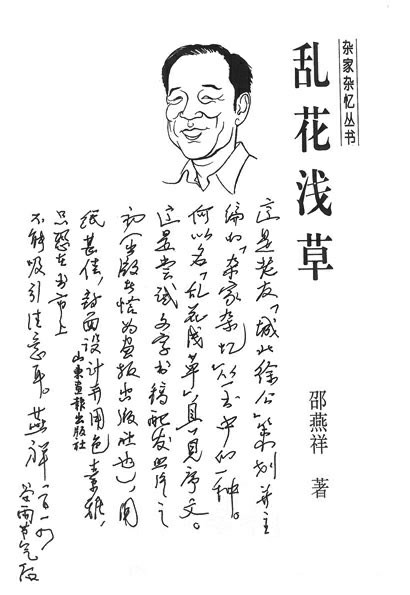 杂家杂忆丛书
乱花浅草
邵燕祥 著
这是老友「城北徐公」策划并主
编的「杂家杂忆」丛书中的一种。
何以名「乱花浅草」,具见序文。
这是尝试文字书稿配发照片之
初(出版者恰为画报出版社也),用
纸甚佳,封面设计并用色素雅,
山东画报出版社
只恐在书市上
不能吸引注意耳。燕祥
谷雨节气后